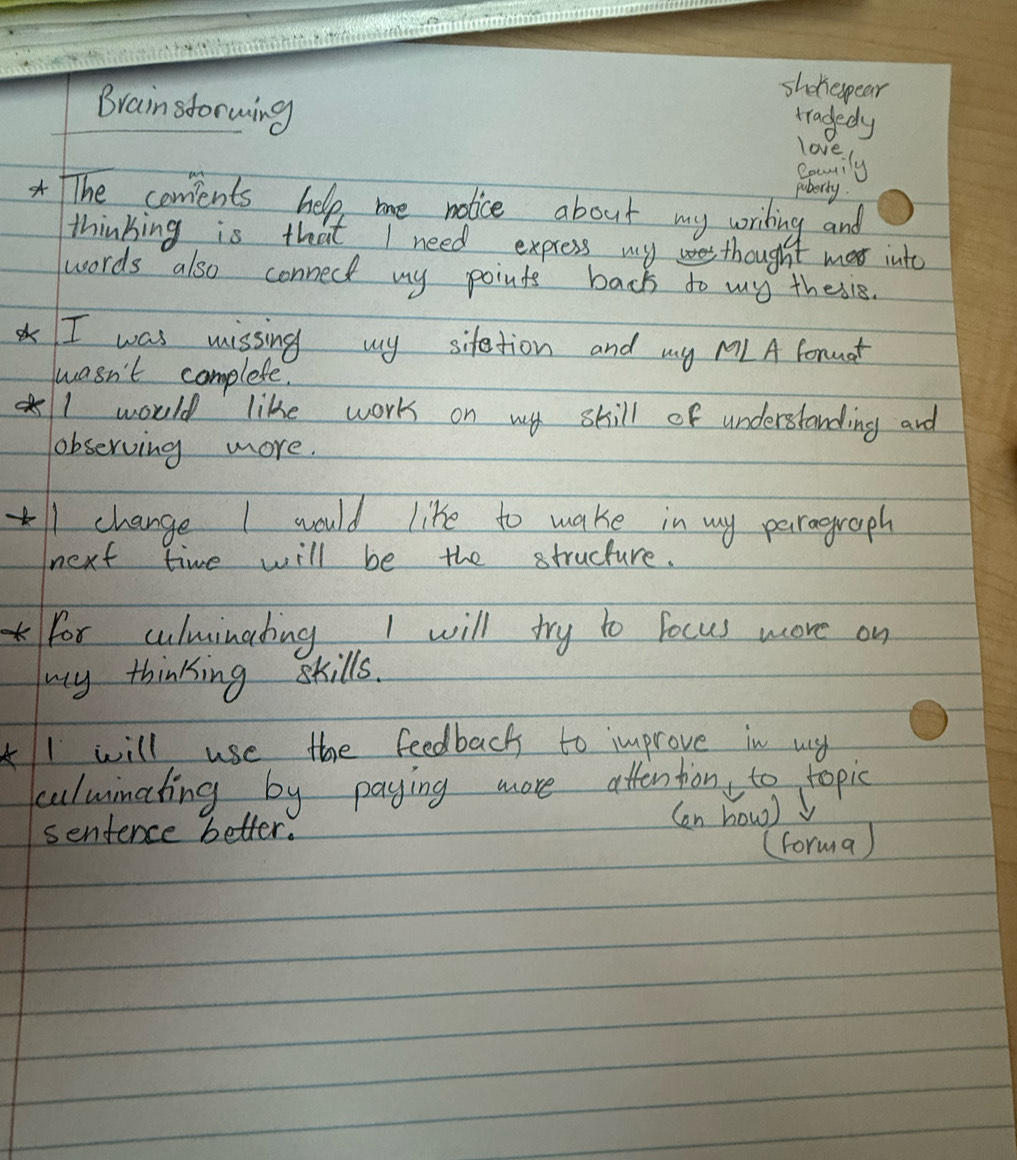 Brainstorming
shakespear
tragedy
love
family
puberty.
* The coments help me notice about my writing and
m
thinking is that I need express my thought into
words also connect my points back to my thesis.
* I was missing my sitation and my MLA format
wasn't complete.
* I would like work on my skill of understanding and
observing more.
* 1 change I would like to make in my paragraph
next time will be the structure.
* For culminating I will try to focus more on
my thinking skills.
* I will use the feedback to improve in my
culminating by paying more attention to topic
(on how)
sentence better.
(forma)